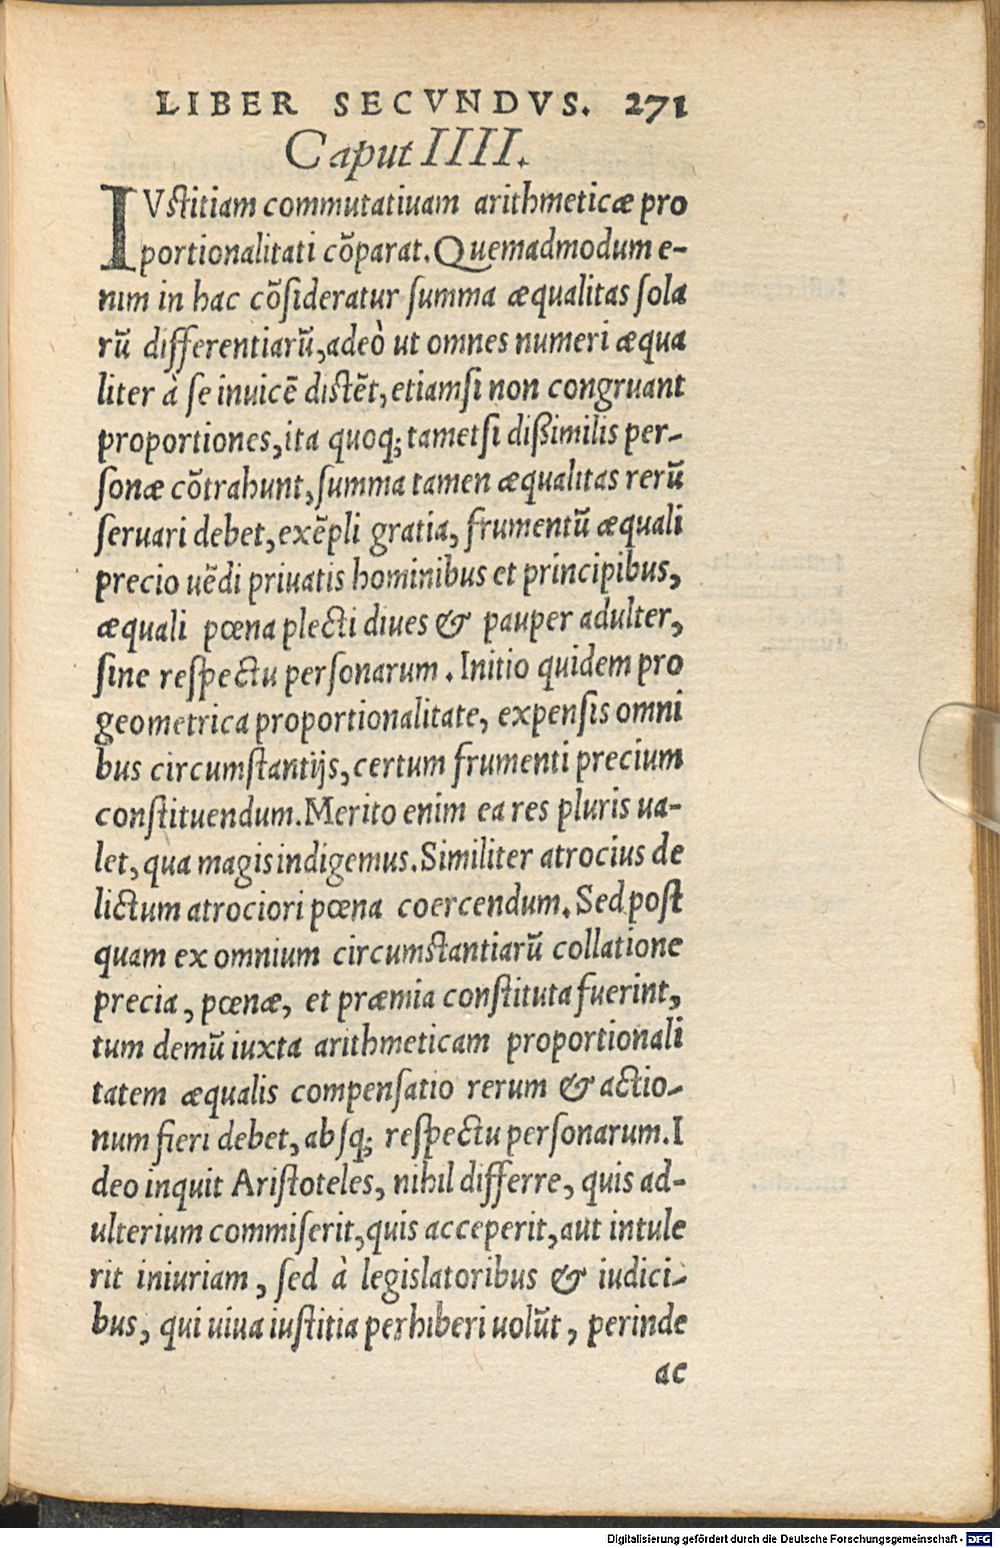 LIBER SECVNDVS. 271
Caput IIII.
IVstitiam commutatiuam arithmeticæ pro
portionalitati cõparat. Quemadmodum e-
nim in hac cõsideratur summa æqualitas sola
rũ differentiarũ, adeò ut omnes numeri æqua
liter à se inuicẽ distẽt, etiamsi non congruant
proportiones, ita quoq; tametsi dißimilis per-
sonæ cõtrahunt, summa tamen æqualitas rerũ
seruari debet, exẽpli gratia, frumentũ æquali
precio uẽdi priuatis hominibus et principibus,
æquali pœna plecti diues & pauper adulter,
sine respectu personarum. Initio quidem pro
geometrica proportionalitate, expensis omni
bus circumstantijs, certum frumenti precium
constituendum. Merito enim ea res pluris ua-
let, qua magis indigemus. Similiter atrocius de
lictum atrociori pœna coercendum. Sed post
quam ex omnium circumstantiarũ collatione
precia, pœnæ, et præmia constituta fuerint,
tum demũ iuxta arithmeticam proportionali
tatem æqualis compensatio rerum & actio-
num fieri debet, absq; respectu personarum. I
deo inquit Aristoteles, nihil differre, quis ad-
ulterium commiserit, quis acceperit, aut intule
rit iniuriam, sed à legislatoribus & iudici-
bus, qui uiua iustitia perhiberi uolũt, perinde
ac
Digitalisierung gefördert durch die Deutsche Forschungsgemeinschaft - DFG